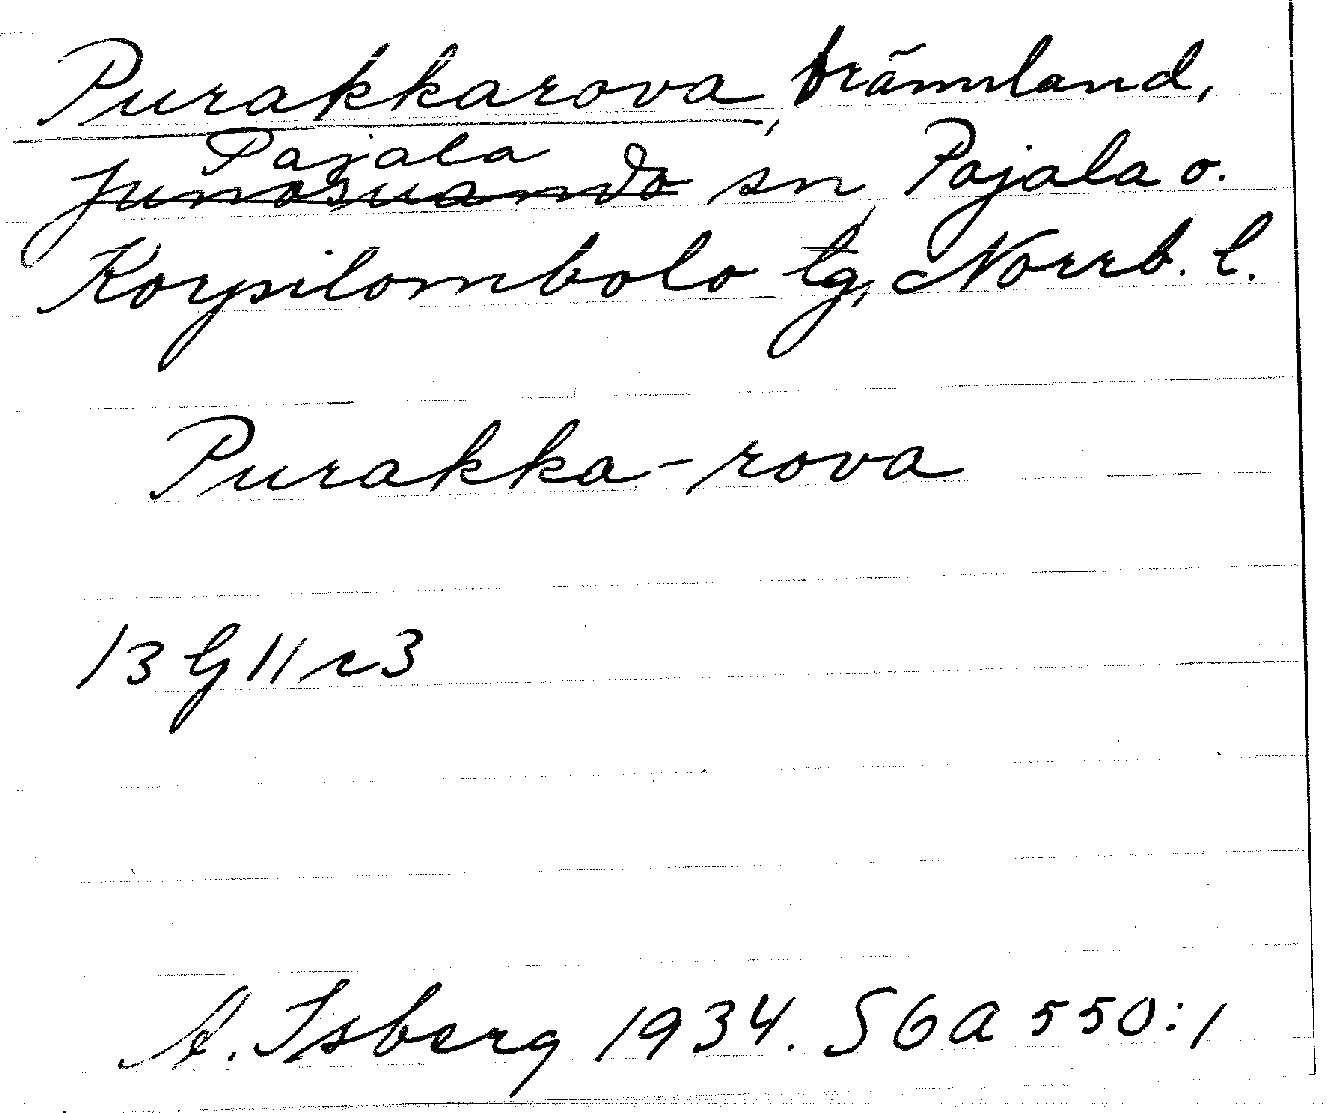 Purakkarova, brännland,
Pajala
Junosuando sn, Pajala o.
Korpilombolo tg, Norrb. l.
Purakka-rova
13 G 11 c 3
A. Isberg 1934. SGA 550:1